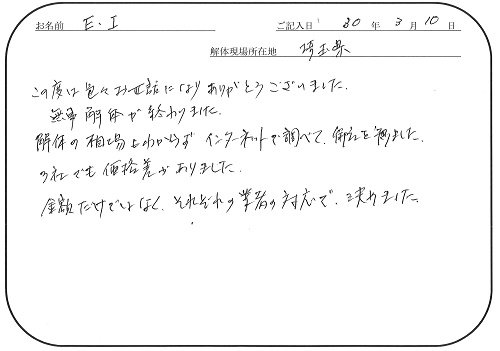 お名前 E.I ご記入日 30年3月10日
解体現場所在地 埼玉県
この度は色々お世話になりありがとうございました。
無事解体が終わりました。
解体の相場もわからず インターネットで調べて、御社を知りました。
3社でも価格差がありました。
金額だけでなく、それぞれの業者の対応で、決めました。